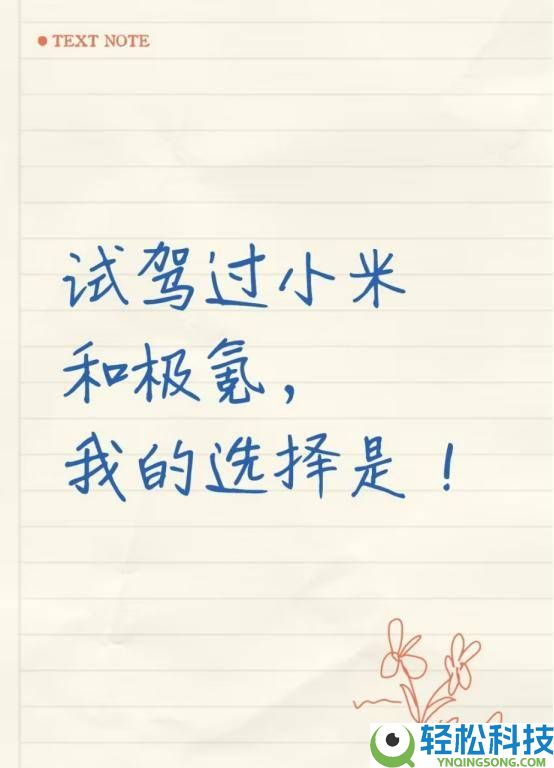 TEXT NOTE
试驾过小米
和极氪，
我的选择是！
轻松科技
YNQINGSONG.COM